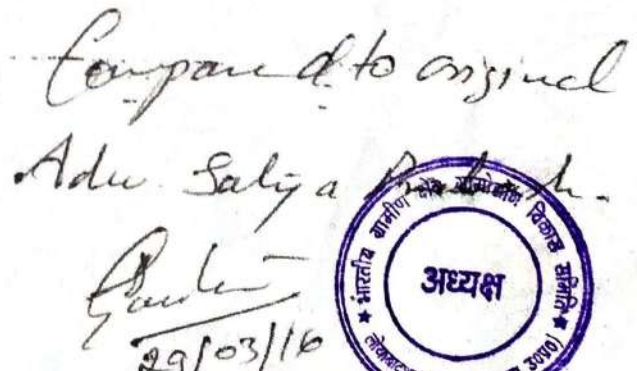 Compared to original
Adv. Satya Prakash.
29/03/16
भारतीय ग्रामीण विकास समिति
अध्यक्ष
उ०प्र०